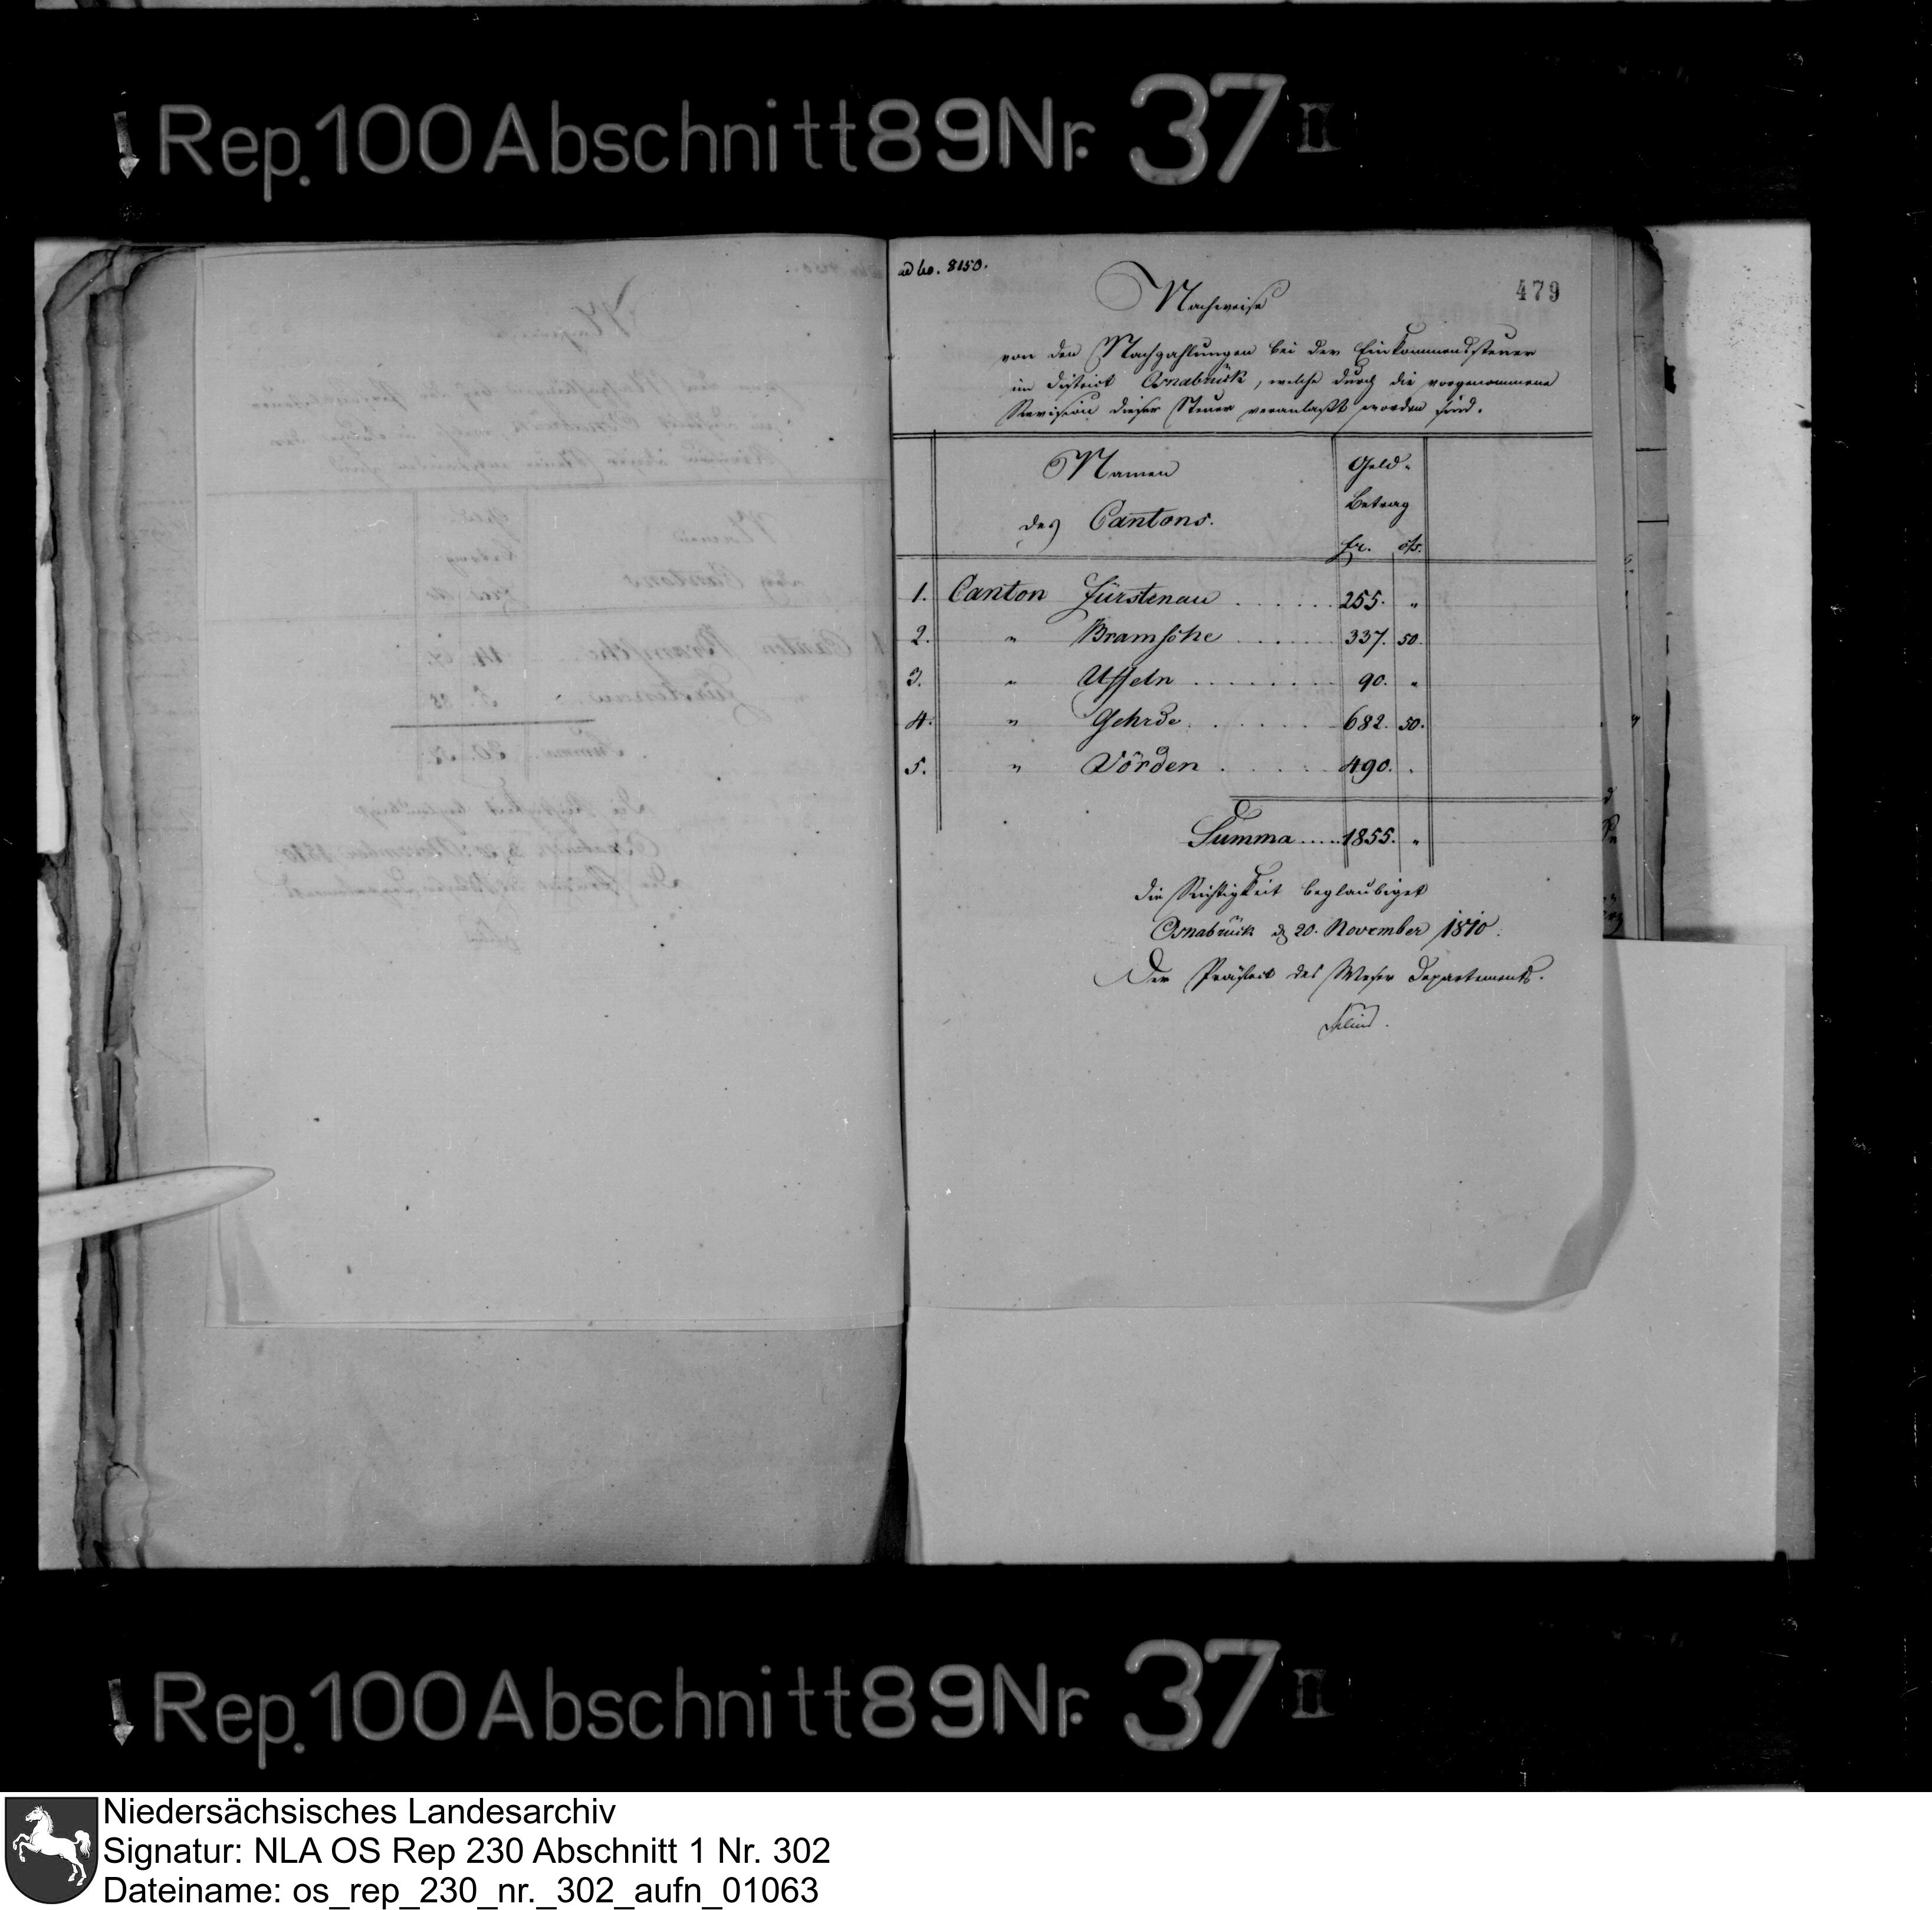 Rep. 100 Abschnitt 89 Nr. 37 II
ad No. 8150.
479
Nachweise
von den Nachzahlungen bei der Einkommenssteuer
im District Osnabrück, welche durch die vorgenommene
Revision dieser Steuer veranlaßt worden sind.
Namen des Cantons.
Geld-Betrag
fr. cts.
1. Canton Fürstenau . . . . . . 255. "
2. " Bramsche . . . . . . 337. 50.
3. " Uffeln . . . . . . . 90. "
4. " Gehrde . . . . . . 682. 50.
5. " Vörden . . . . . 490. .
Summa ..... 1855. "
die Richtigkeit beglaubiget
Osnabrück d 20. November 1810.
Der Präfect des Weser Departements.
Rep. 100 Abschnitt 89 Nr. 37 II
Niedersächsisches Landesarchiv
Signatur: NLA OS Rep 230 Abschnitt 1 Nr. 302
Dateiname: os_rep_230_nr._302_aufn_01063